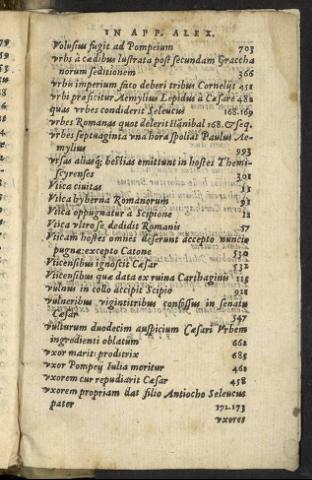 IN APP. ALEX.
Volusius fugit ad Pompeium 703
vrbs à cædibus lustrata post secundam Graccha
norum seditionem 366
vrbis imperium fato deberi tribus Cornelijs 451
vrbi præficitur Aemylius Lepidus à Cæsare 482
quas vrbes condiderit Seleucus 168.169
vrbes Romanas quot delerit Hānibal 168. & seq.
vrbes septuaginta vna hora spoliat Paulus Ae-
mylius 993
vrsus aliasq; bestias emittunt in hostes Themi-
scyrenses 301
Vtica ciuitas 11
Vtica hyberna Romanorum 91
Vtica oppugnatur à Scipione 11
Vtica vltro se dedidit Romanis 57
Vticam hostes omnes deserunt accepto nuncio
pugnæ: excepto Catone 530
Vticensibus ignoscit Cæsar 532
Vticensibus quæ data ex ruina Carthaginis 115
vulnus in collo accipit Scipio 921
vulneribus vigintitribus confossus in senatu
Cæsar 547
vulturum duodecim auspicium Cæsari Vrbem
ingredienti oblatum 662
vxor mariti proditrix 685
vxor Pompeij Iulia moritur 461
vxorem cur repudiarit Cæsar 458
vxorem propriam dat filio Antiocho Seleucus
pater 172.173
vxores